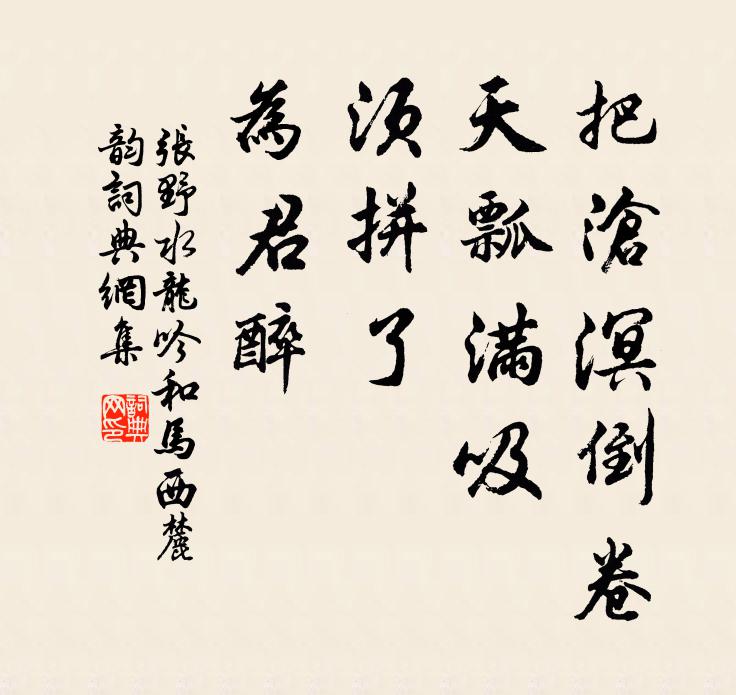 把滄溟倒卷
天瓢滿吸
須拼了
為君醉
張野水龍吟和馬西麓
韵詞典網集
詞典网印